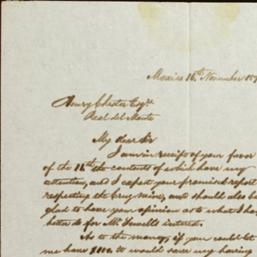 Mexico 16th November 18
Henry Chester Esqre
Real del Monte
My dear Sir
I am in receipt of your favor
of the 14th the contents of which have my
attention, and I expect your promised report
respecting the mine, and should also be
glad to have your opinion as to what I had
better do for Mr interest.
As to the money if you could let
me have $100 it would save my having